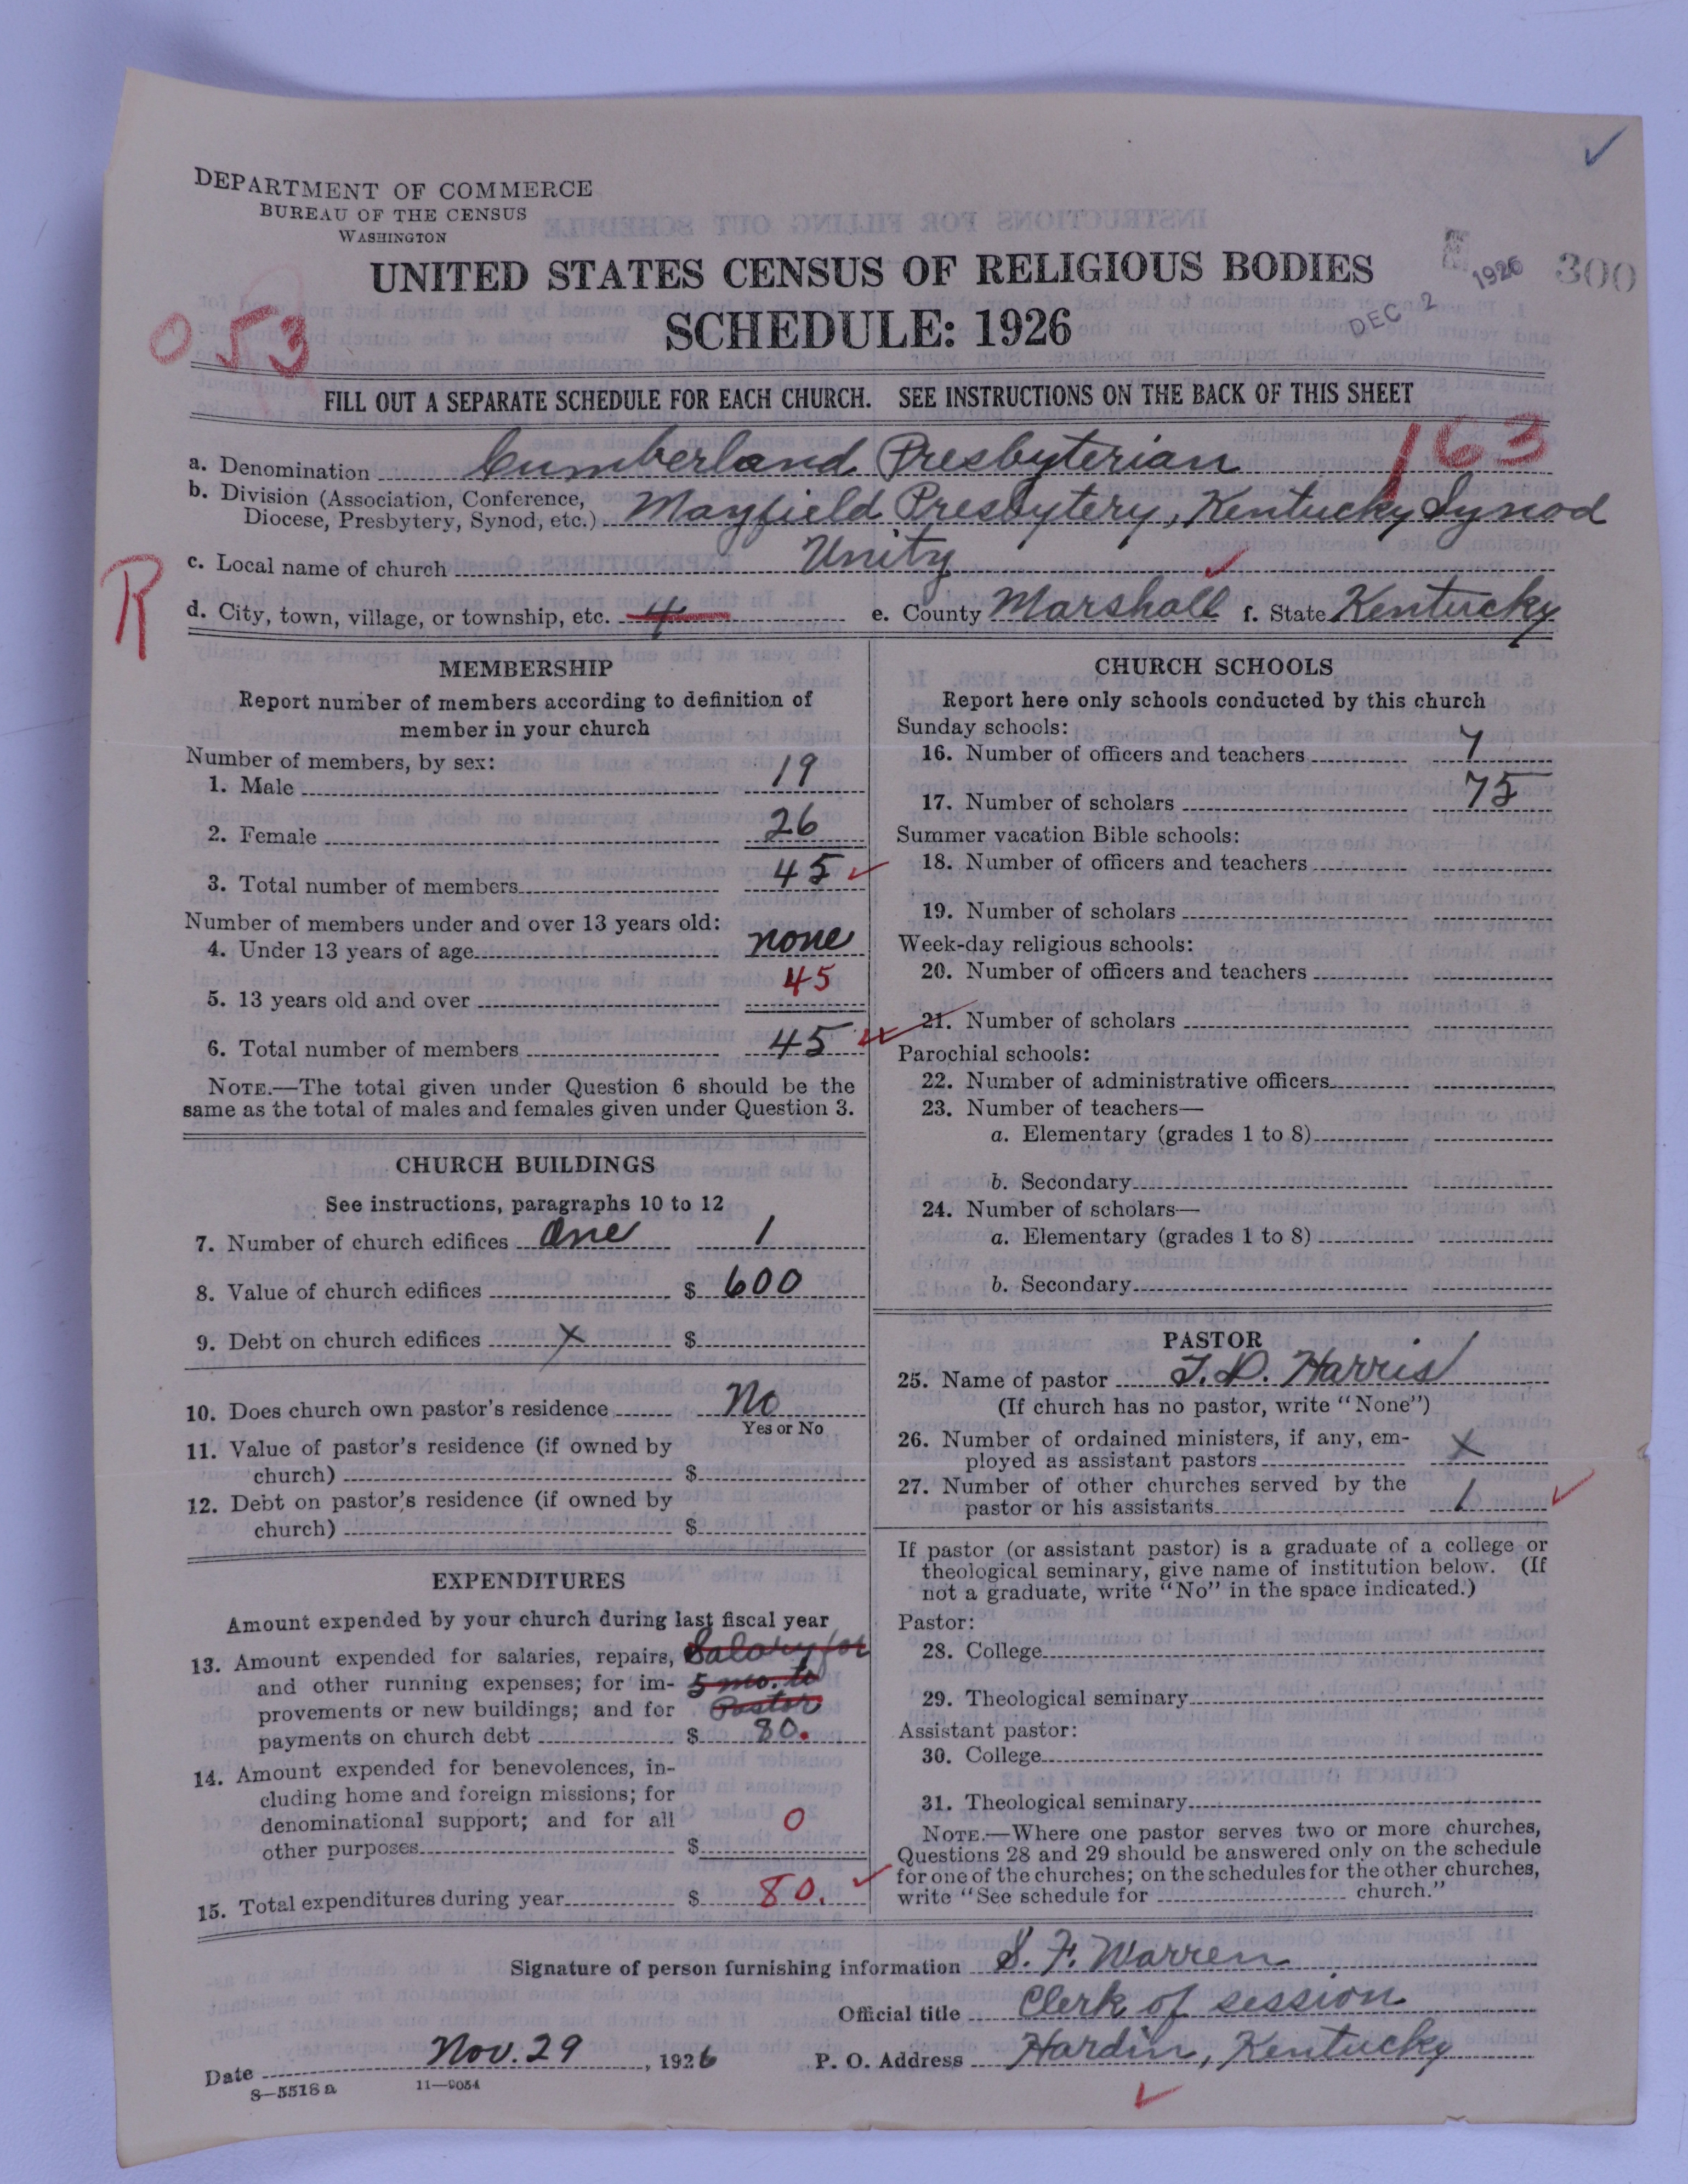 DEPARTMENT OF COMMERCE
BUREAU OF THE CENSUS
WASHINGTON
UNITED STATES CENSUS OF RELIGIOUS BODIES
SCHEDULE: 1926
DEC 2 1926
300
053
FILL OUT A SEPARATE SCHEDULE FOR EACH CHURCH. SEE INSTRUCTIONS ON THE BACK OF THIS SHEET
163
a. Denomination Cumberland Presbyterian
b. Division (Association, Conference,
Diocese, Presbytery, Synod, etc.) Mayfield Presbytery, Kentucky Synod
c. Local name of church Unity
R
d. City, town, village, or township, etc. 4 e. County Marshall f. State Kentucky
MEMBERSHIP
Report number of members according to definition of
member in your church
Number of members, by sex:
1. Male 19
2. Female 26
3. Total number of members 45
Number of members under and over 13 years old:
4. Under 13 years of age none
5. 13 years old and over 45
6. Total number of members 45
NOTE.—The total given under Question 6 should be the
same as the total of males and females given under Question 3.
CHURCH BUILDINGS
See instructions, paragraphs 10 to 12
7. Number of church edifices One 1
8. Value of church edifices $ 600
9. Debt on church edifices x $
10. Does church own pastor's residence No
Yes or No
11. Value of pastor's residence (if owned by
church) $
12. Debt on pastor's residence (if owned by
church) $
EXPENDITURES
Amount expended by your church during last fiscal year
13. Amount expended for salaries, repairs, Salary for
and other running expenses; for im- 5 mo. to
provements or new buildings; and for Pastor
payments on church debt $ 80.
14. Amount expended for benevolences, in-
cluding home and foreign missions; for
denominational support; and for all 0
other purposes $
15. Total expenditures during year $ 80.
CHURCH SCHOOLS
Report here only schools conducted by this church
Sunday schools:
16. Number of officers and teachers 7
17. Number of scholars 75
Summer vacation Bible schools:
18. Number of officers and teachers
19. Number of scholars
Week-day religious schools:
20. Number of officers and teachers
21. Number of scholars
Parochial schools:
22. Number of administrative officers
23. Number of teachers—
a. Elementary (grades 1 to 8)
b. Secondary
24. Number of scholars—
a. Elementary (grades 1 to 8)
b. Secondary
PASTOR
25. Name of pastor T. D. Harris 1
(If church has no pastor, write "None")
26. Number of ordained ministers, if any, em-
ployed as assistant pastors x
27. Number of other churches served by the
pastor or his assistants 1
If pastor (or assistant pastor) is a graduate of a college or
theological seminary, give name of institution below. (If
not a graduate, write "No" in the space indicated.)
Pastor:
28. College
29. Theological seminary
Assistant pastor:
30. College
31. Theological seminary
NOTE.—Where one pastor serves two or more churches,
Questions 28 and 29 should be answered only on the schedule
for one of the churches; on the schedules for the other churches,
write "See schedule for church."
Signature of person furnishing information S. F. Warren
Official title Clerk of session
Date Nov. 29, 1926 P. O. Address Hardin, Kentucky
8—5518 a 11—9054